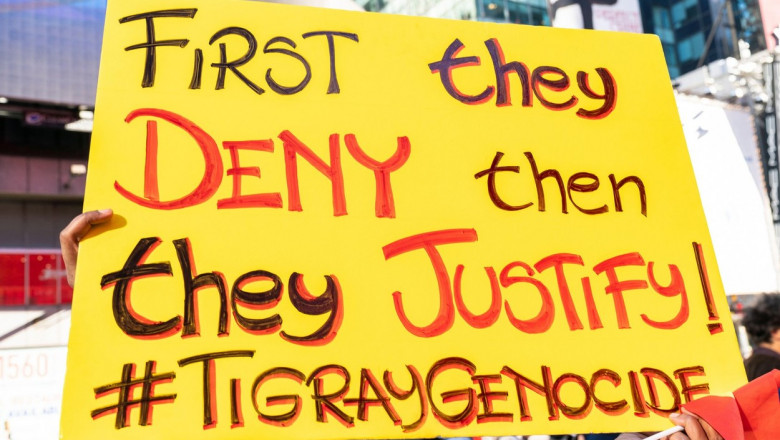 FIRST they
DENY then
they JUSTIFY!
#TIGRAYGENOCIDE
1560